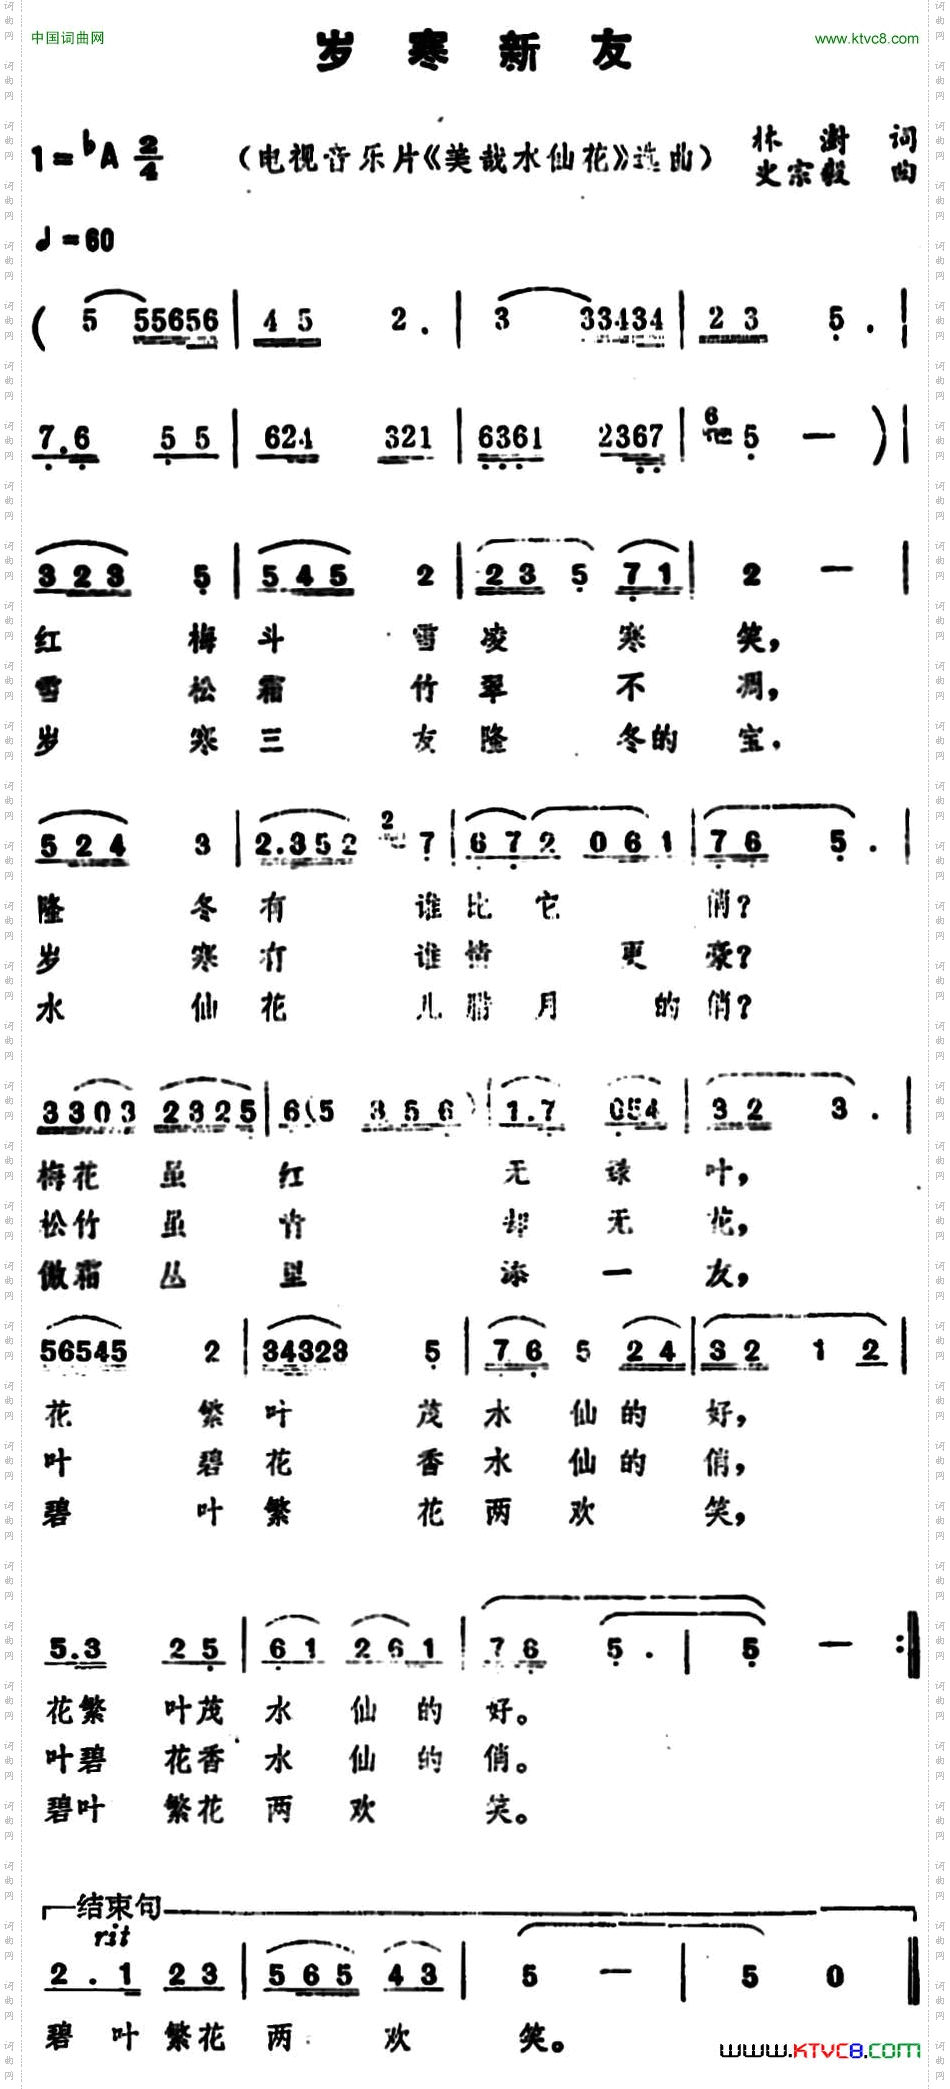 中国词曲网
www.ktvc8.com
岁寒新友
1=♭A 2/4
(电视音乐片《美哉水仙花》选曲)
林澍 词
史宗毅 曲
♩=60
( 5 55656 | 45 2. | 3 33434 | 23 5. |
7.6 55 | 624 321 | 6361 2367 | 6 5 — ) |
323 5 | 545 2 | 23 5 71 | 2 — |
红 梅斗 雪凌 寒 笑，
雪 松霜 竹翠 不 凋，
岁 寒三 友隆 冬的 宝．
524 3 | 2.352 2 7 | 672 061 | 76 5. |
隆 冬有 谁比它 俏？
岁 寒有 谁情 更 豪？
水 仙花 儿腊月 的俏？
3303 2325 | 6(5 356) | 1.7 054 | 32 3. |
梅花 虽 红 无 绿 叶，
松竹 虽 青 却 无 花，
傲霜 丛 里 添 一 友，
56545 2 | 34323 5 | 76 5 24 | 32 1 2 |
花 繁叶 茂水 仙的 好，
叶 碧花 香水 仙的 俏，
碧 叶繁 花两 欢 笑，
5.3 25 | 61 261 | 76 5. | 5 — :‖
花繁 叶茂 水 仙 的 好。
叶碧 花香 水 仙 的 俏。
碧叶 繁花 两 欢 笑。
结束句
rit
2.1 23 | 565 43 | 5 — | 5 0 ‖
碧 叶 繁花 两 欢 笑。
www.KTVC8.com